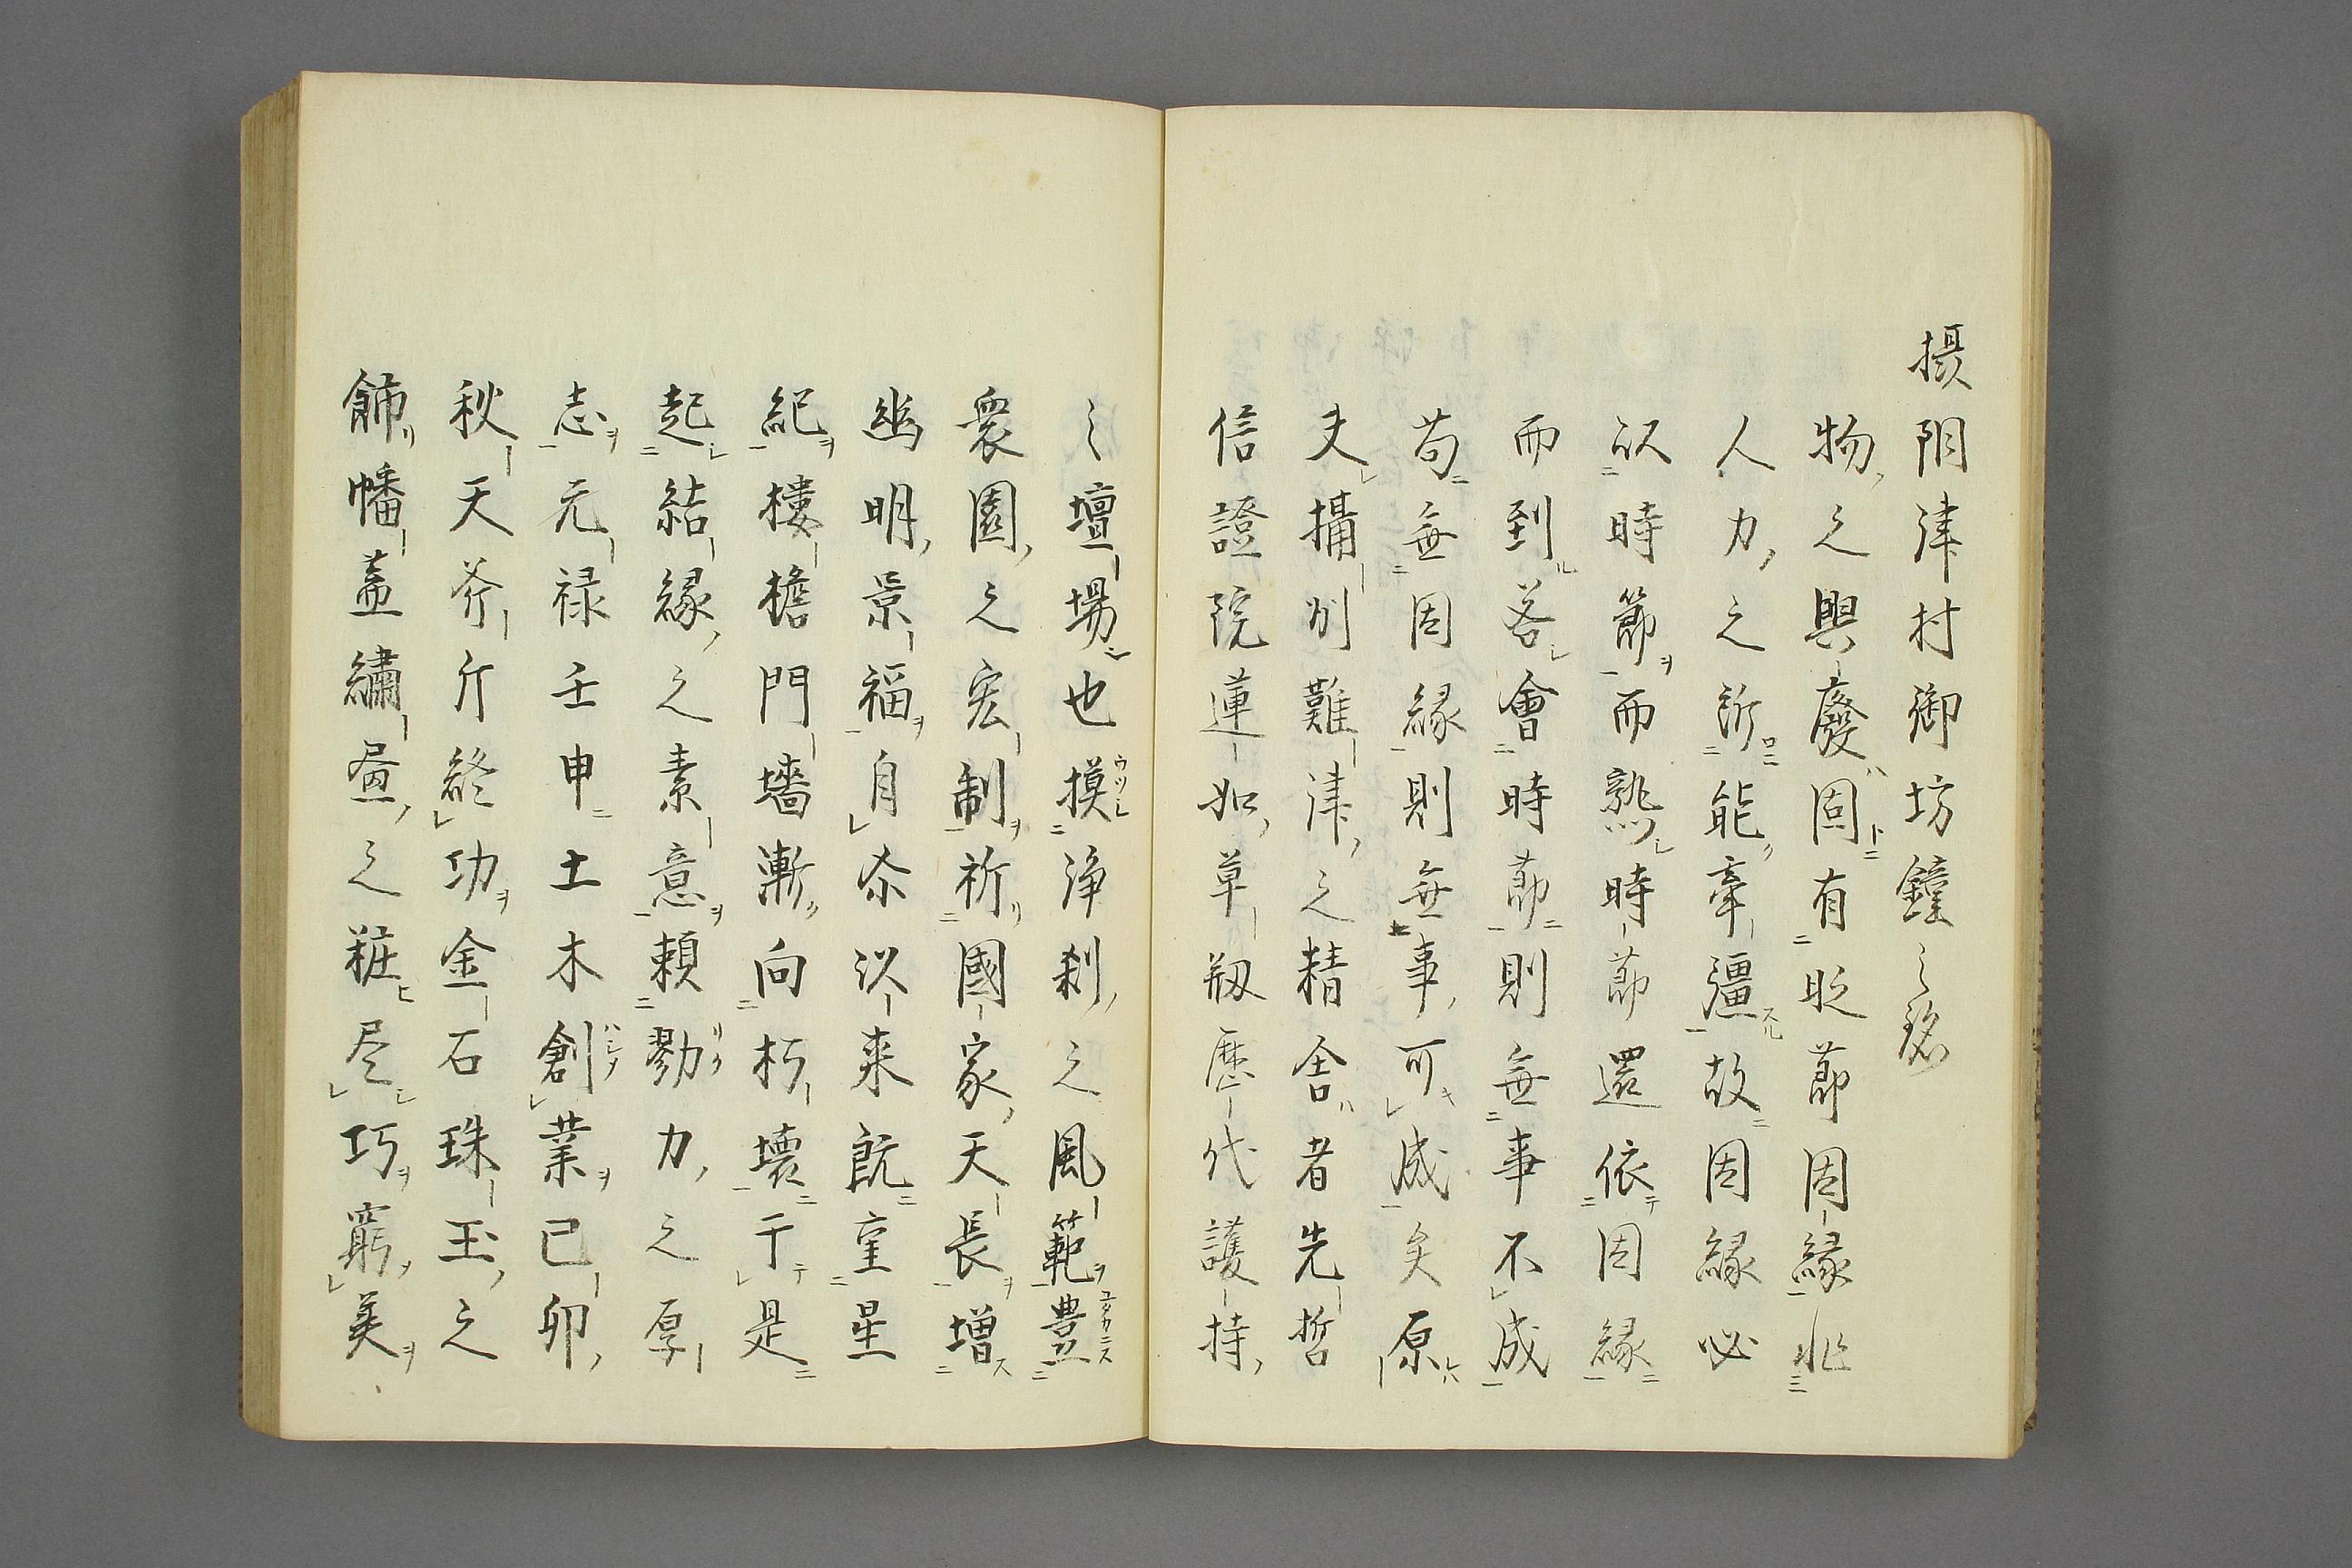 摂陽津村御坊鐘之銘
物之興廢固有時節因縁非
人力之所能牽彊故因縁必
以時節而熟時節還依因縁
而到若會時節則無事不成
苟無因縁則無事可成矣原
夫攝州難津之精舎者先哲
信證院蓮如草剏歴代護持
之壇場也摸浄刹之風範豊
衆園之宏制祈國家天長増
幽明景福自尒以来既童星
紀樓檐門墻漸向朽壊于是
起結縁之素意頼勠力之厚
志元禄壬申土木創業己卯
秋天斧斤終功金石珠玉之
飾幡蓋繍畫之粧尽巧窮美